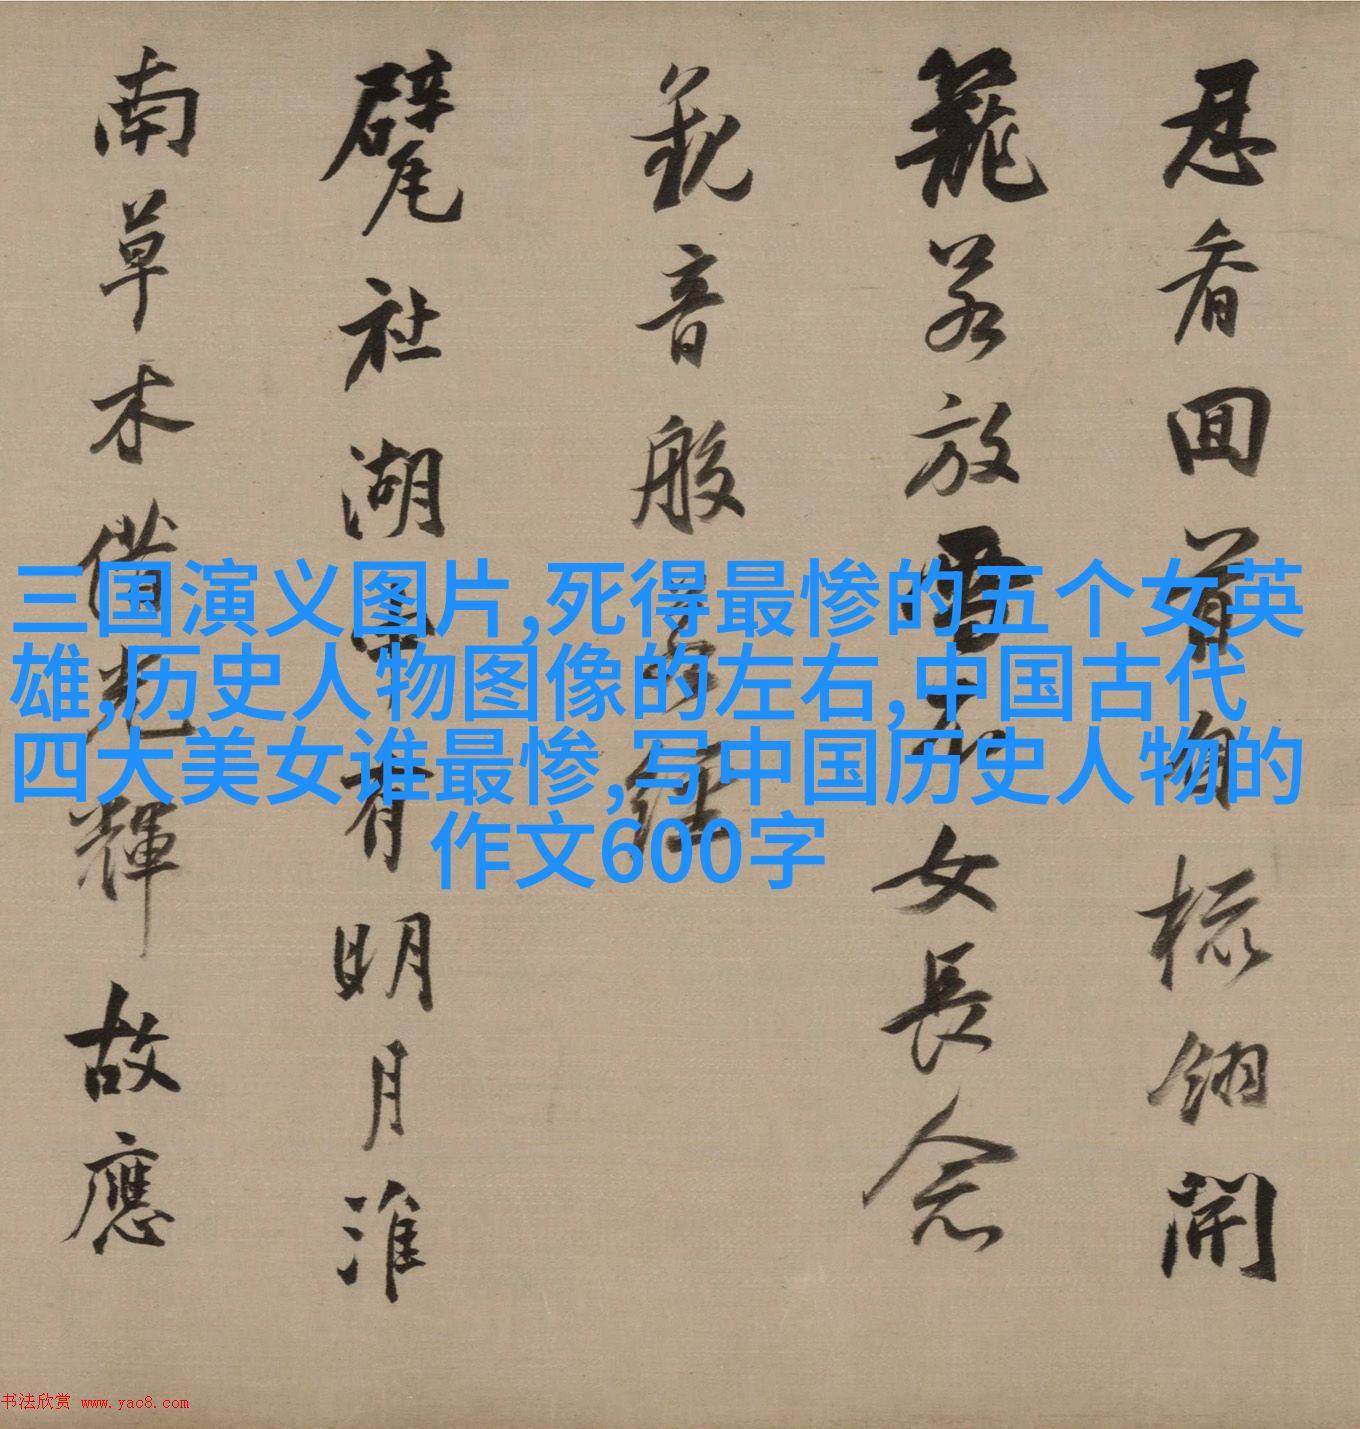 忍看囬首自梳翎開
籠若放雪衣女長念
觀音般若經
甓社湖中有明月淮
南草木借光輝故應
三国演义图片,死得最惨的五个女英
雄,历史人物图像的左右,中国古代
四大美女谁最惨,写中国历史人物的
作文600字
书法欣赏 www.yac8.com